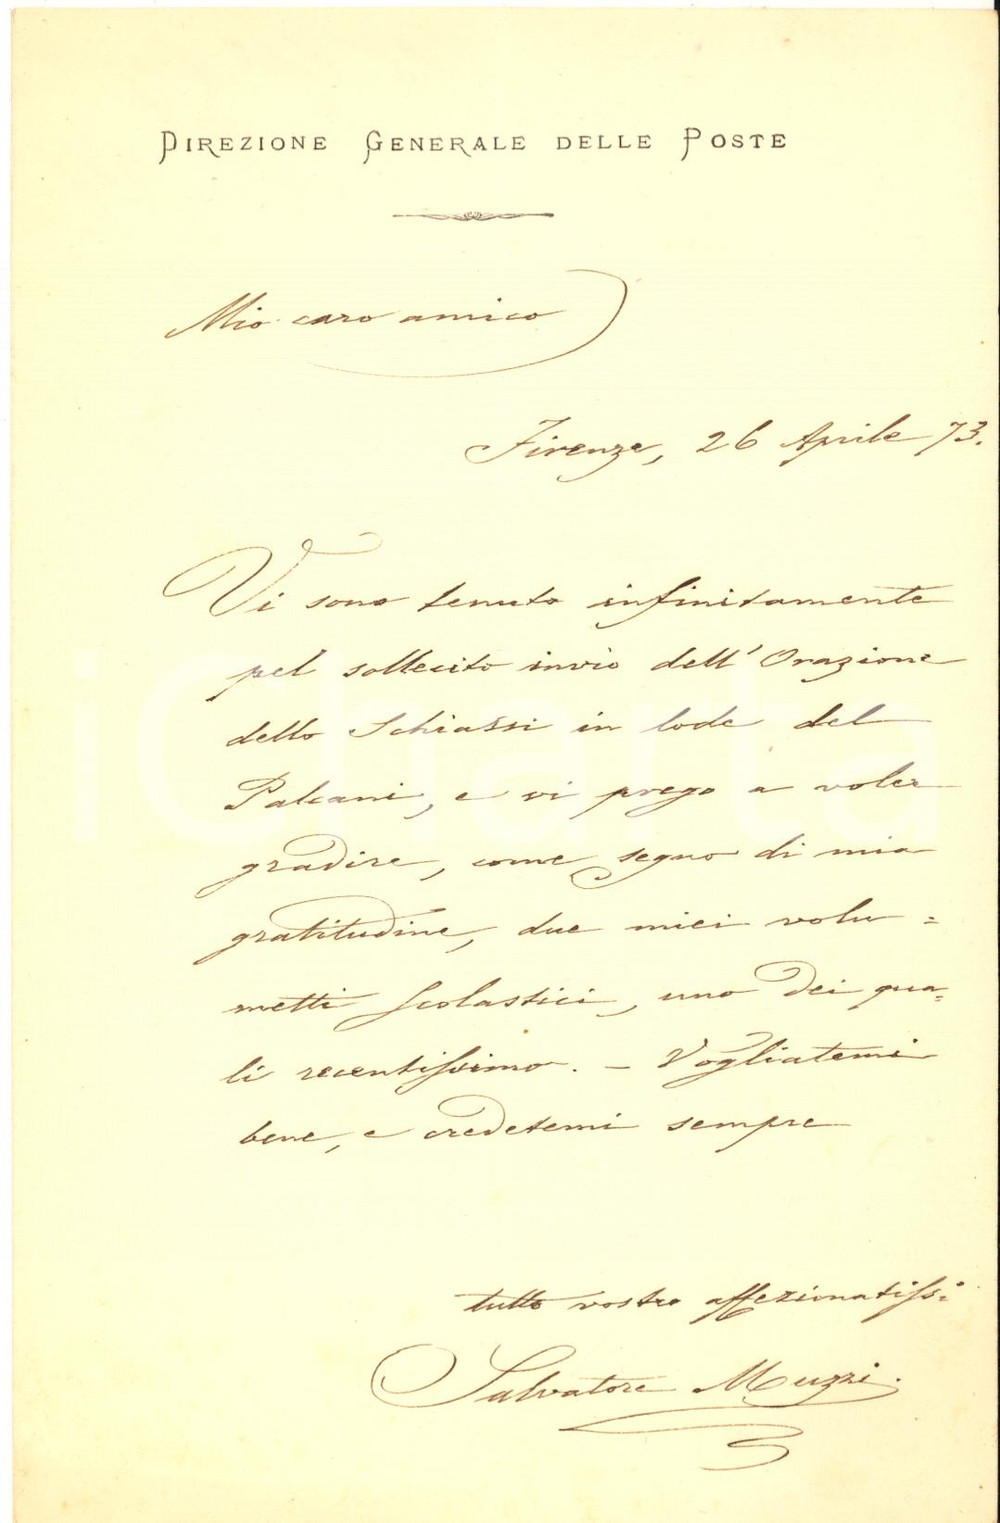 DIREZIONE GENERALE DELLE POSTE
Mio caro amico
Firenze, 26 Aprile 73.
Vi sono tenuto infinitamente
pel sollecito invio dell' Orazione
dello Schiassi in lode del
Palcani, e vi prego a voler
gradire, come segno di mia
gratitudine, due miei volu=
metti scolastici, uno dei qua=
li recentissimo. – Vogliatemi
bene, e credetemi sempre
tutto vostro affezionatiss:
Salvatore Muzzi.
iCharta